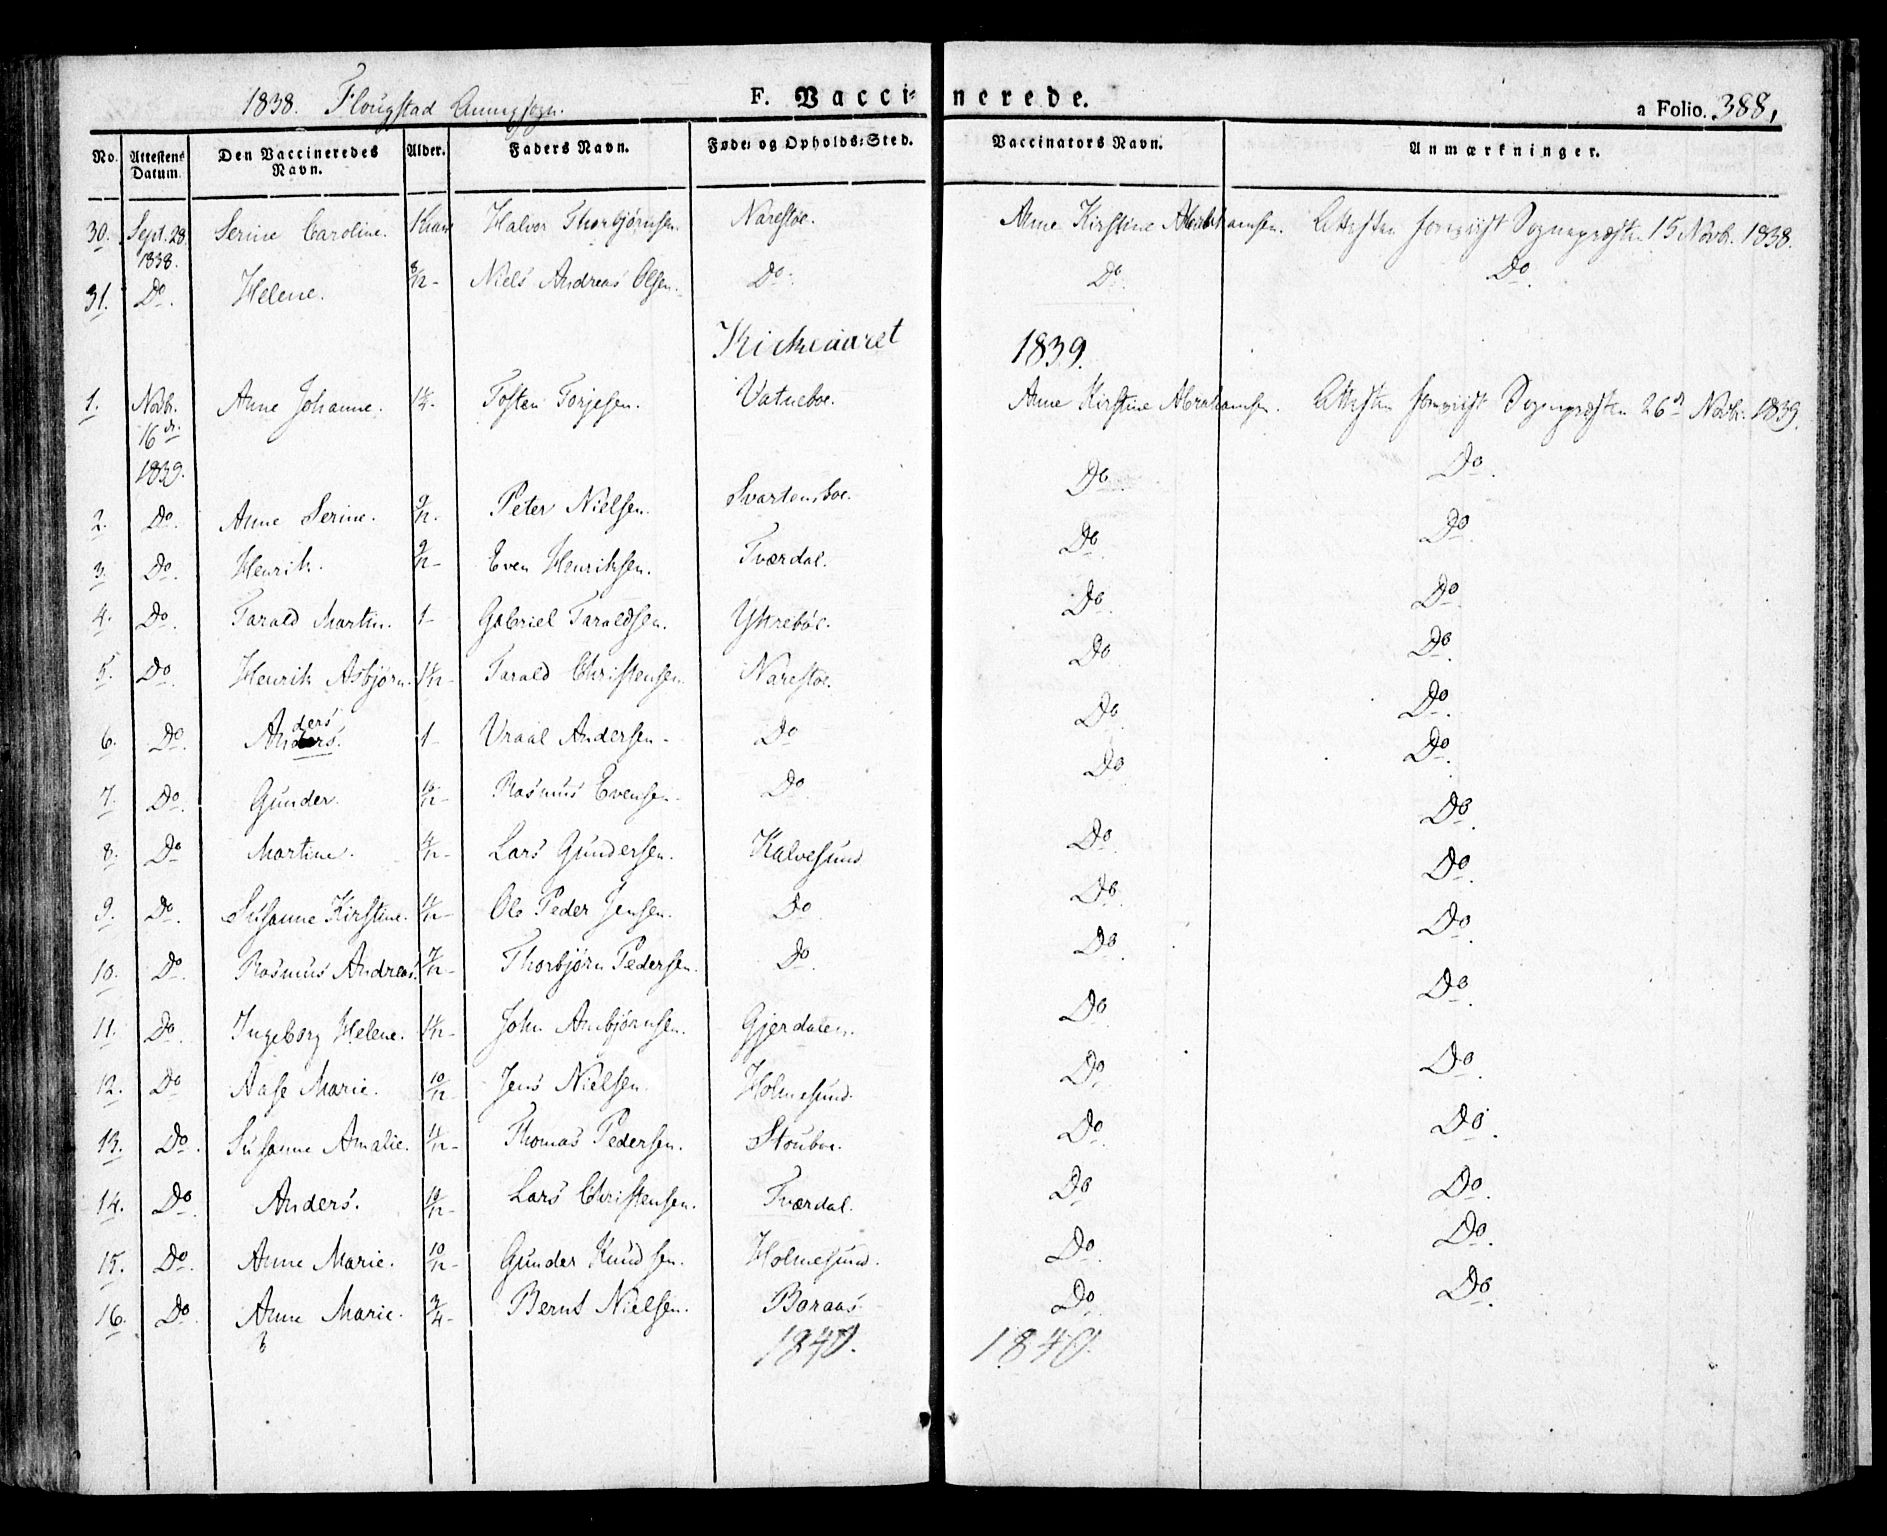 1838. Flougstad Annexsogn. F. Vaccinerede. a Folio. 388,
No. Attestens Datum. Den Vaccineredes Navn. Alder. Faders Navn. Føde- og Opholds-Sted. Vaccinators Navn. Anmærkninger.
30. Sept. 28 1838. Serine Caroline. Halvor Thorbjørnsen. Narestøe. Anne Kirstine Abrahamsen. Attesten foreviist Sognepræsten 15 Novbr. 1838.
31. Do. Helene. 8/12 - Niels Andreas Olsen. Do. Do. Do.
Kirkeaaret 1839.
1. Novbr. 16de 1839. Anne Johanne. Tosten Torjesen. Vatneboe. Anne Kirstine Abrahamsen. Attesten foreviist Sognepræsten 26de Novbr. 1839.
2. Do. Anne Serine. 9/12. Peter Nielsen. Svartensboe. Do. Do.
3. Do. Henrik. 9/12 - Even Henriksen. Tværdal. Do. Do.
4. Do. Tarald Martin. 1 - Gabriel Taraldsen. Ytrebøe. Do. Do.
5. Do. Henrik Asbjørn. Tarald Christensen. Narestøe. Do. Do.
6. Do. Anders. 1 - Vraal Andersen - Do Do. Do.
7. Do. Gunder. 10/12 - Rasmus Evensen - Do. Do Do.
8. Do Martine. Lars Gundersen. Kalvesund Do. Do.
9. Do. Susanne Kirstine. Ole Peder Jensen. Do Do. Do.
10. Do Rasmus Andreas. 7/12 - Thorbjørn Pedersen. Do. Do. Do.
11. Do. Ingeborg Helene. John Anbjørnsen. Gjerdalen. Do Do.
12. Do Aase Marie. 10/12 - Jens Nielsen. Holmesund. Do. Do
13. Do. Susanne Amalie. 11/12 - Thomas Pedersen. Stoubøe. Do. Do.
14. Do. Anders. 10/12 - Lars Christensen. Tværdal. Do Do.
15. Do. Anne Marie. 10/12 - Gunder Knudsen. Holmesund. Do. Do.
16. Do. Anne Marie. 3/4 - Bernt Nielsen. Boraas. Do. Do.
1840. 1840.